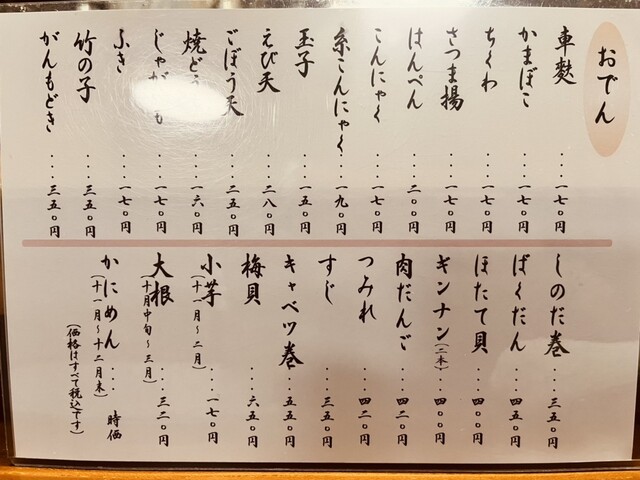 おでん
車麩 ････一七〇円
かまぼこ ････一七〇円
ちくわ ････一七〇円
さつま揚 ････一七〇円
はんぺん ････二〇〇円
こんにゃく ････一七〇円
糸こんにゃく ････一九〇円
玉子 ････一五〇円
えび天 ････二八〇円
ごぼう天 ････二五〇円
焼ど ････一六〇円
じゃが も ････一七〇円
ふき ････一七〇円
竹の子 ････三五〇円
がんもどき ････三五〇円
しのだ巻 ････三五〇円
ばくだん ････四五〇円
ほたて貝 ････四〇〇円
ギンナン(二本) ････四〇〇円
肉だんご ････四二〇円
つみれ ････四二〇円
すじ ････三五〇円
キャベツ巻 ････五五〇円
梅貝 ････六五〇円
小芋 (十一月〜二月) ････一七〇円
大根 (十月中旬〜三月) ････三二〇円
かにめん (十一月〜十二月末) ････時価
(価格はすべて税込です)